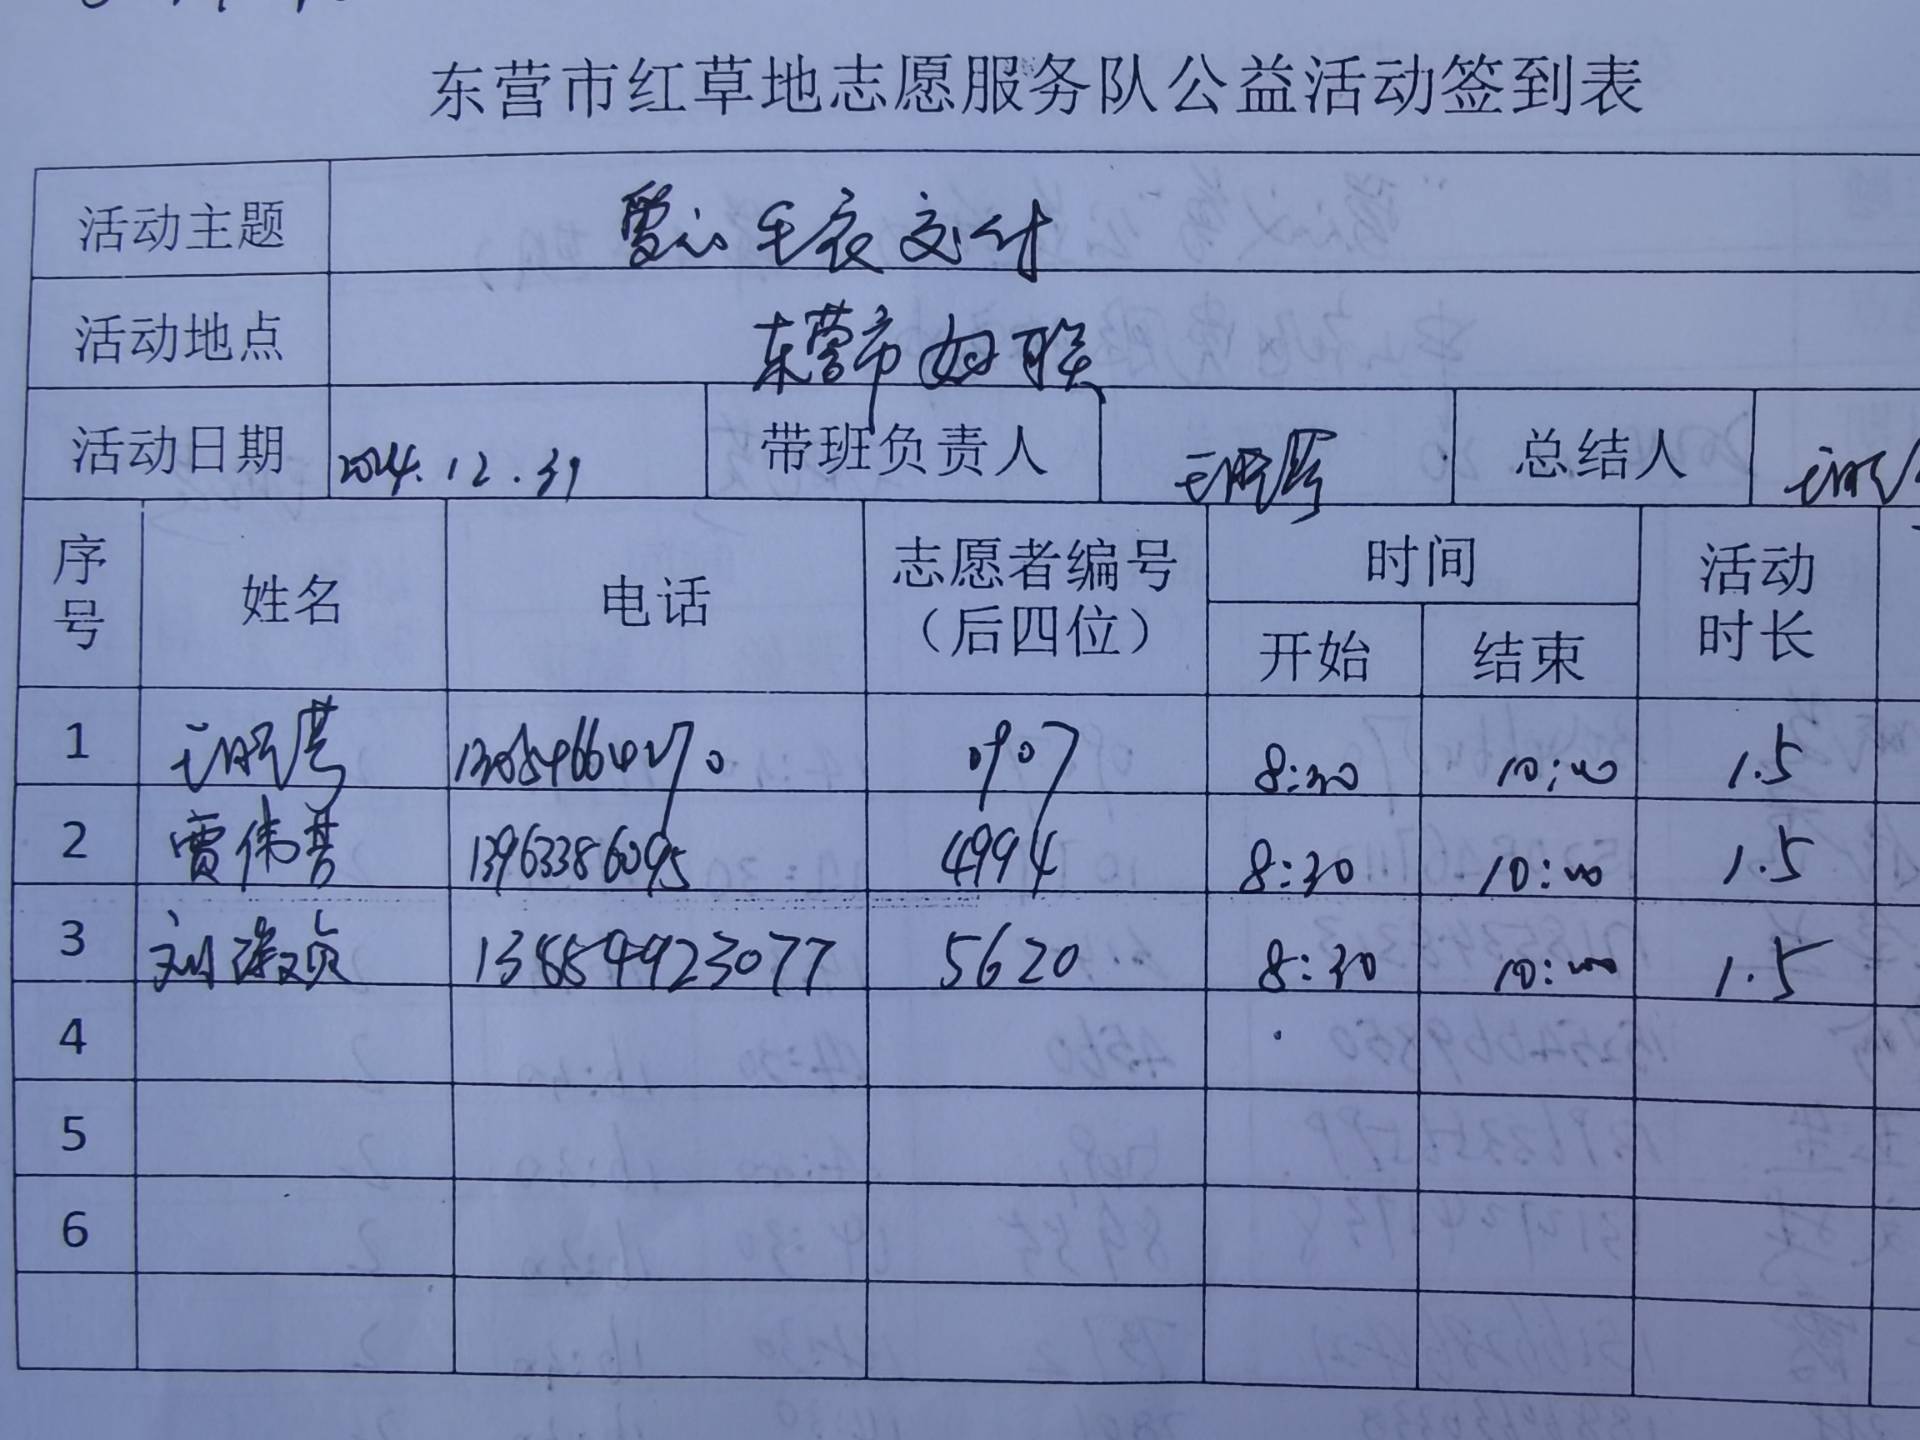 东营市红草地志愿服务队公益活动签到表
活动主题 爱心毛衣交付
活动地点 东营市妇联
活动日期 2024.12.31 带班负责人 总结人
序号 姓名 电话 志愿者编号（后四位） 时间 活动时长
开始 结束
1 0907 8:30 10:00 1.5
2 贾伟 13963386095 4994 8:30 10:00 1.5
3 刘 13854923077 5620 8:30 10:00 1.5
4
5
6